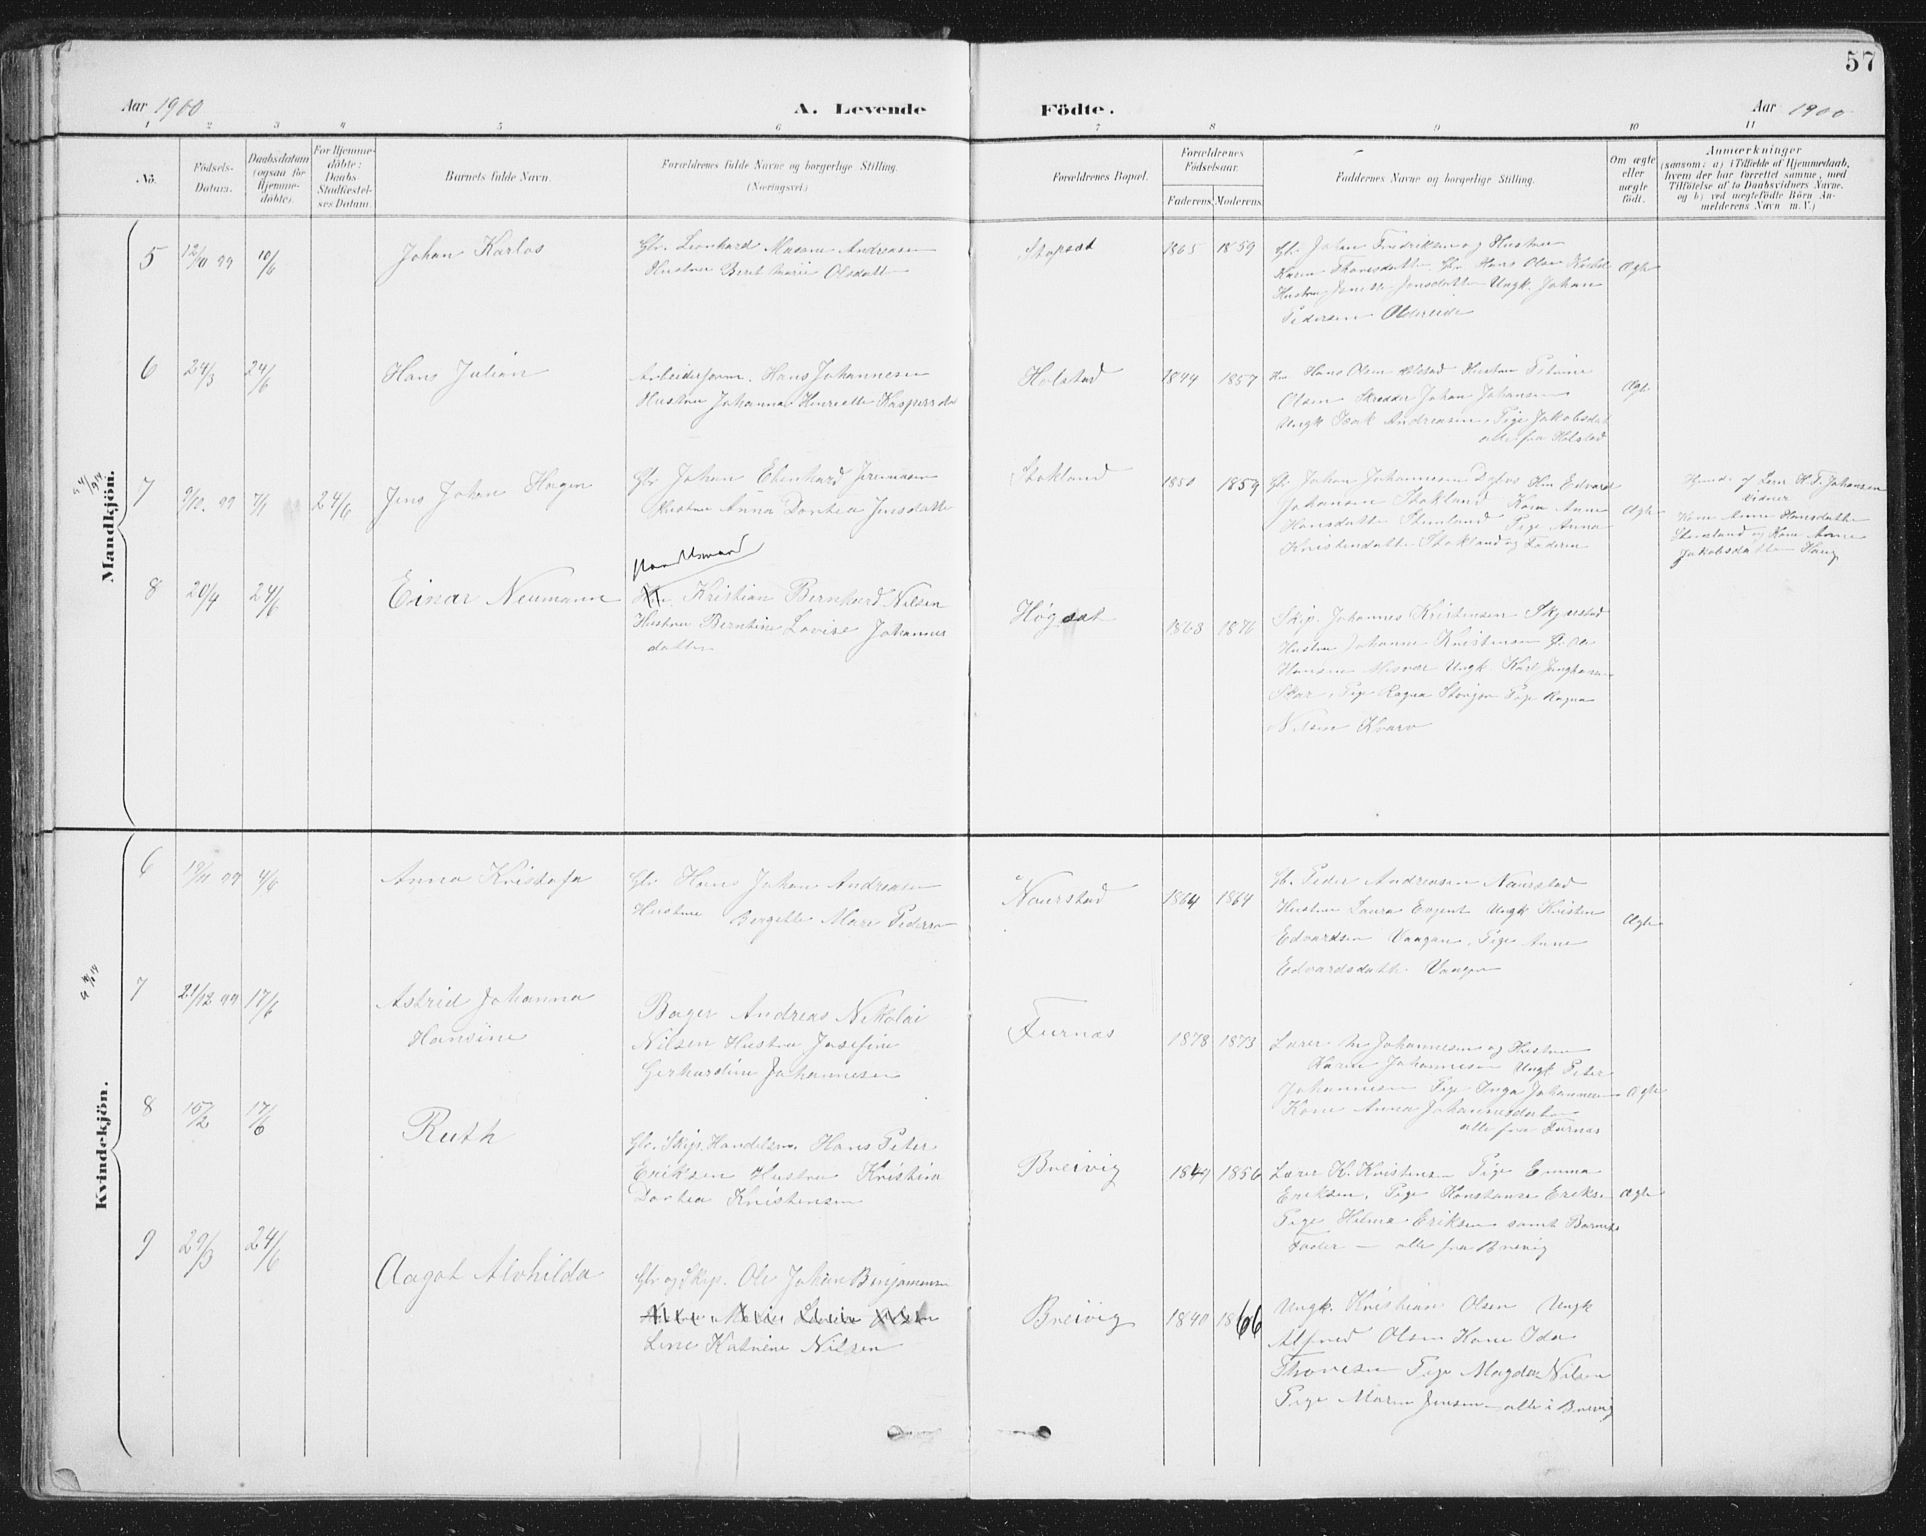 57
Aar 1900
A. Levende
Födte.
Aar 1900
1 2 3 4 5 6 7 8 9 10 11
No.
Födsels-
Datum.
Daabsdatum
(ogsaa for
Hjemme-
döbte).
For Hjemme-
döbte:
Daabs-
Stadfæstel-
ses Datum.
Barnets fulde Navn.
Forældrenes fulde Navne og borgerlige Stilling.
(Næringsvei.)
Forældrenes Bopæl.
Forældrenes
Födselsaar.
Faderens. Moderens.
Faddernes Navne og borgerlige Stilling.
Om ægte
eller
uægte
födt.
Anmærkninger
(saasom: a) i Tilfælde af Hjemmedaab,
hvem der har forrettet samme, med
Tilföielse af to Daabsvidners Navne.
og b) ved uægtefödte Börn An-
melderens Navn m. V.)
Mandkjön.
5
12/11 99
10/6
Johan Karlos
Gbr. Leonhard Masene Andreasen
Hustru Beret Marie Olsdatt
Stopsat
1865
1859
Gbr. Johan Fredriksen og Hustru
Karen Thoresdatte Gbr Hans Olsen
Hustru Jensdatte Ungk. Johan
Pedersen Oldereide
Ægte
6
24/3
24/6
Hans Julian
Arbeiderform. Hans Johannesen
Hustru Johanna Henriette Kaspersdat
Holstad
1844
1857
Hm Hans Olsen Holstad Hustru
Olsen Skredder Johan Johansen
Ungk Isak Andreasen, Pige Jakobsdat
alle fra Holstad
Ægte
7
9/12. 99
7/1
24/6
Jens Johan Hagen
Gbr Johan Ebenhard Jeremiasen
Hustru Anna Dortea Jensdatte
Stokland
1850
1859
Gbr Johan Johannesen Hm Edvard
Johansen Stokland Kone Anne
Hansdatte Stemland Pige Anna
Kristensdatte Stokland og Faderen
Ægte
Hjemde af Lærer H. F. Johansen
Vidner
Kone Anne Hansdatte
Stemland og Kone Anne
Jakobsdatte Haug
8
20/4
24/6
Einar Neumann
Handelsmand
Hm. Kristian Bernhard Nilsen
Hustru Berntine Lovise Johannes
datter
Høgset
1868
1876
Skip. Johannes Kristensen Skjæstad
Hustru Johanne Kristensen
Hansen Misvær Ungk Karl
Skar, Pige Ragna Storjor Pige Ragna
Nilsen Kvarv
Kvindekjön.
6
19/11 99
4/6
Anna Kristofa
Gbr Hans Johan Andreasen
Hustru Bergitte Mare Pedersen
Naurstad
1864
1864
Gb. Peder Andreasen Naurstad
Hustru Laura Evjent Ungk Kristen
Edvardsen Vaagan, Pige Anne
Edvardsdatt. Vaagan
Ægte
7
21/12 99
17/6
Astrid Johanna
Hansine
Bager Andreas Nikolai
Nilsen Hustru Josefine
Gerhardine Johannesen
Furnæs
1878
1873
Lærer Johannesen og Hustru
Karen Johannesen Ungk Peter
Johannesen Pige Inga Johannesen
Kone Anna Johannesdatter
alle fra Furnæs
Ægte
8
15/2
17/6
Ruth
Gbr. Skip. Handelsm. Hans Peter
Eriksen Hustru Kristina
Dortea Kristensen
Breivig
1849
1856
Lærer K. Kristensen Pige Emma
Eriksen, Pige Konstanse Eriksen
Pige Helma Eriksen samt Barnets
Fader — alle fra Brevig
Ægte
9
29/3
24/6
Aagot Alvhilda
Gbr og Skip. Ole Johan Benjaminsen
Line Katrine Nilsen
Breivig
1840
1866
Ungk. Kristian Olsen Ungk
Alfred Olsen Kone Ida
Thoresen Pige Magda Nilsen
Pige Maren Jensen – alle i Brevig